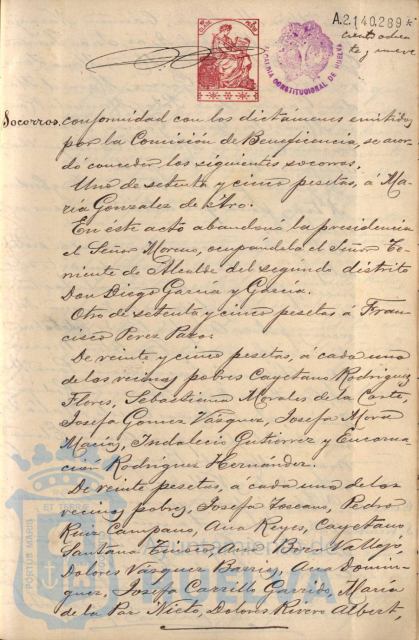 A.2140.289*
ciento ochen
ta y nueve
ALCALDIA CONSTITUCIONAL DE HUELVA
Socorros. conformidad con los dictámenes emitidos
por la Comisión de Beneficencia, se acor
dó conceder los siguientes socorros.
Uno de setenta y cinco pesetas, á Ma
ría Gonzalez de Haro.
En este acto abandonó la presidencia
el Señor Moreno, ocupandola el Señor Te
niente de Alcalde del segundo distrito
Don Diego García y García.
Otro de setenta y cinco pesetas á Fran
cisco Perez Pazo.
De veinte y cinco pesetas, á cada uno
de los vecinos pobres Cayetano Rodriguez
Flores, Sebastiana Morales de la Corte,
Josefa Gomez Vásquez, Josefa Mora
Macías, Indalecio Gutierrez y Encarna
ción Rodriguez Hernandez.
De veinte pesetas, á cada uno de los
vecinos pobres, Josefa Toscano, Pedro
Ruiz Campano, Ana Reyes, Cayetano
Santana Ana Vallejo,
Dolores Vásquez Ana Domin
guez, Josefa Carrillo Garrido, María
de la Paz Nieto, Dolores Rivero Albert,
PORTUS MARIS
HUELVA